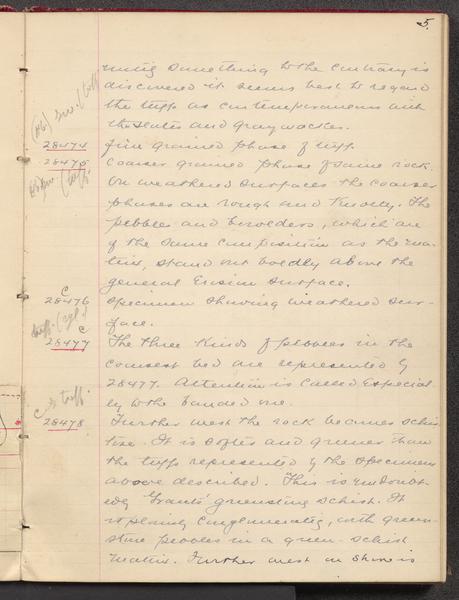 5.
until something to the contrary is
discovered it seems best to regard
the tuffs as contemporaneous with
the slates and graywackes.
28474 fine grained phase of tuff.
28475 Coarser grained phase of same rock.
On weathered surfaces the coarser
phases are rough and knobby. The
pebbles and bowlders, which are
of the same composition as the ma-
trix, stand out boldly above the
general erosion surface.
C
28476 Specimen showing weathered sur-
face.
tuff. (cgl.)
C
28477 The three kinds of pebbles in the
coarsest bed are represented by
28477. Attention is called especial-
ly to the banded one.
tuff.
28478 Further west the rock becomes schis-
tose. It is softer and greener than
the tuffs represented by the specimens
above described. This is undoubt-
edly Grants' greenstone schist. It
is plainly conglomeratic, with green-
stone pebbles in a green-schist
matrix. Further west on shore is